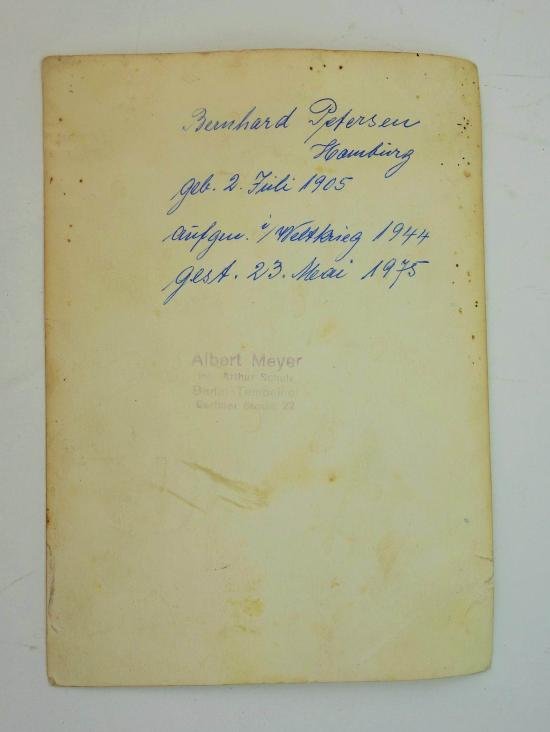 Bernhard Petersen
Hamburg
geb. 2. Juli 1905
aufgen. i/Weltkrieg 1944
gest. 23. Mai 1975
Albert Meyer
Inh. Arthur Schulz
Berlin-Tempelhof
Berliner Straße 22